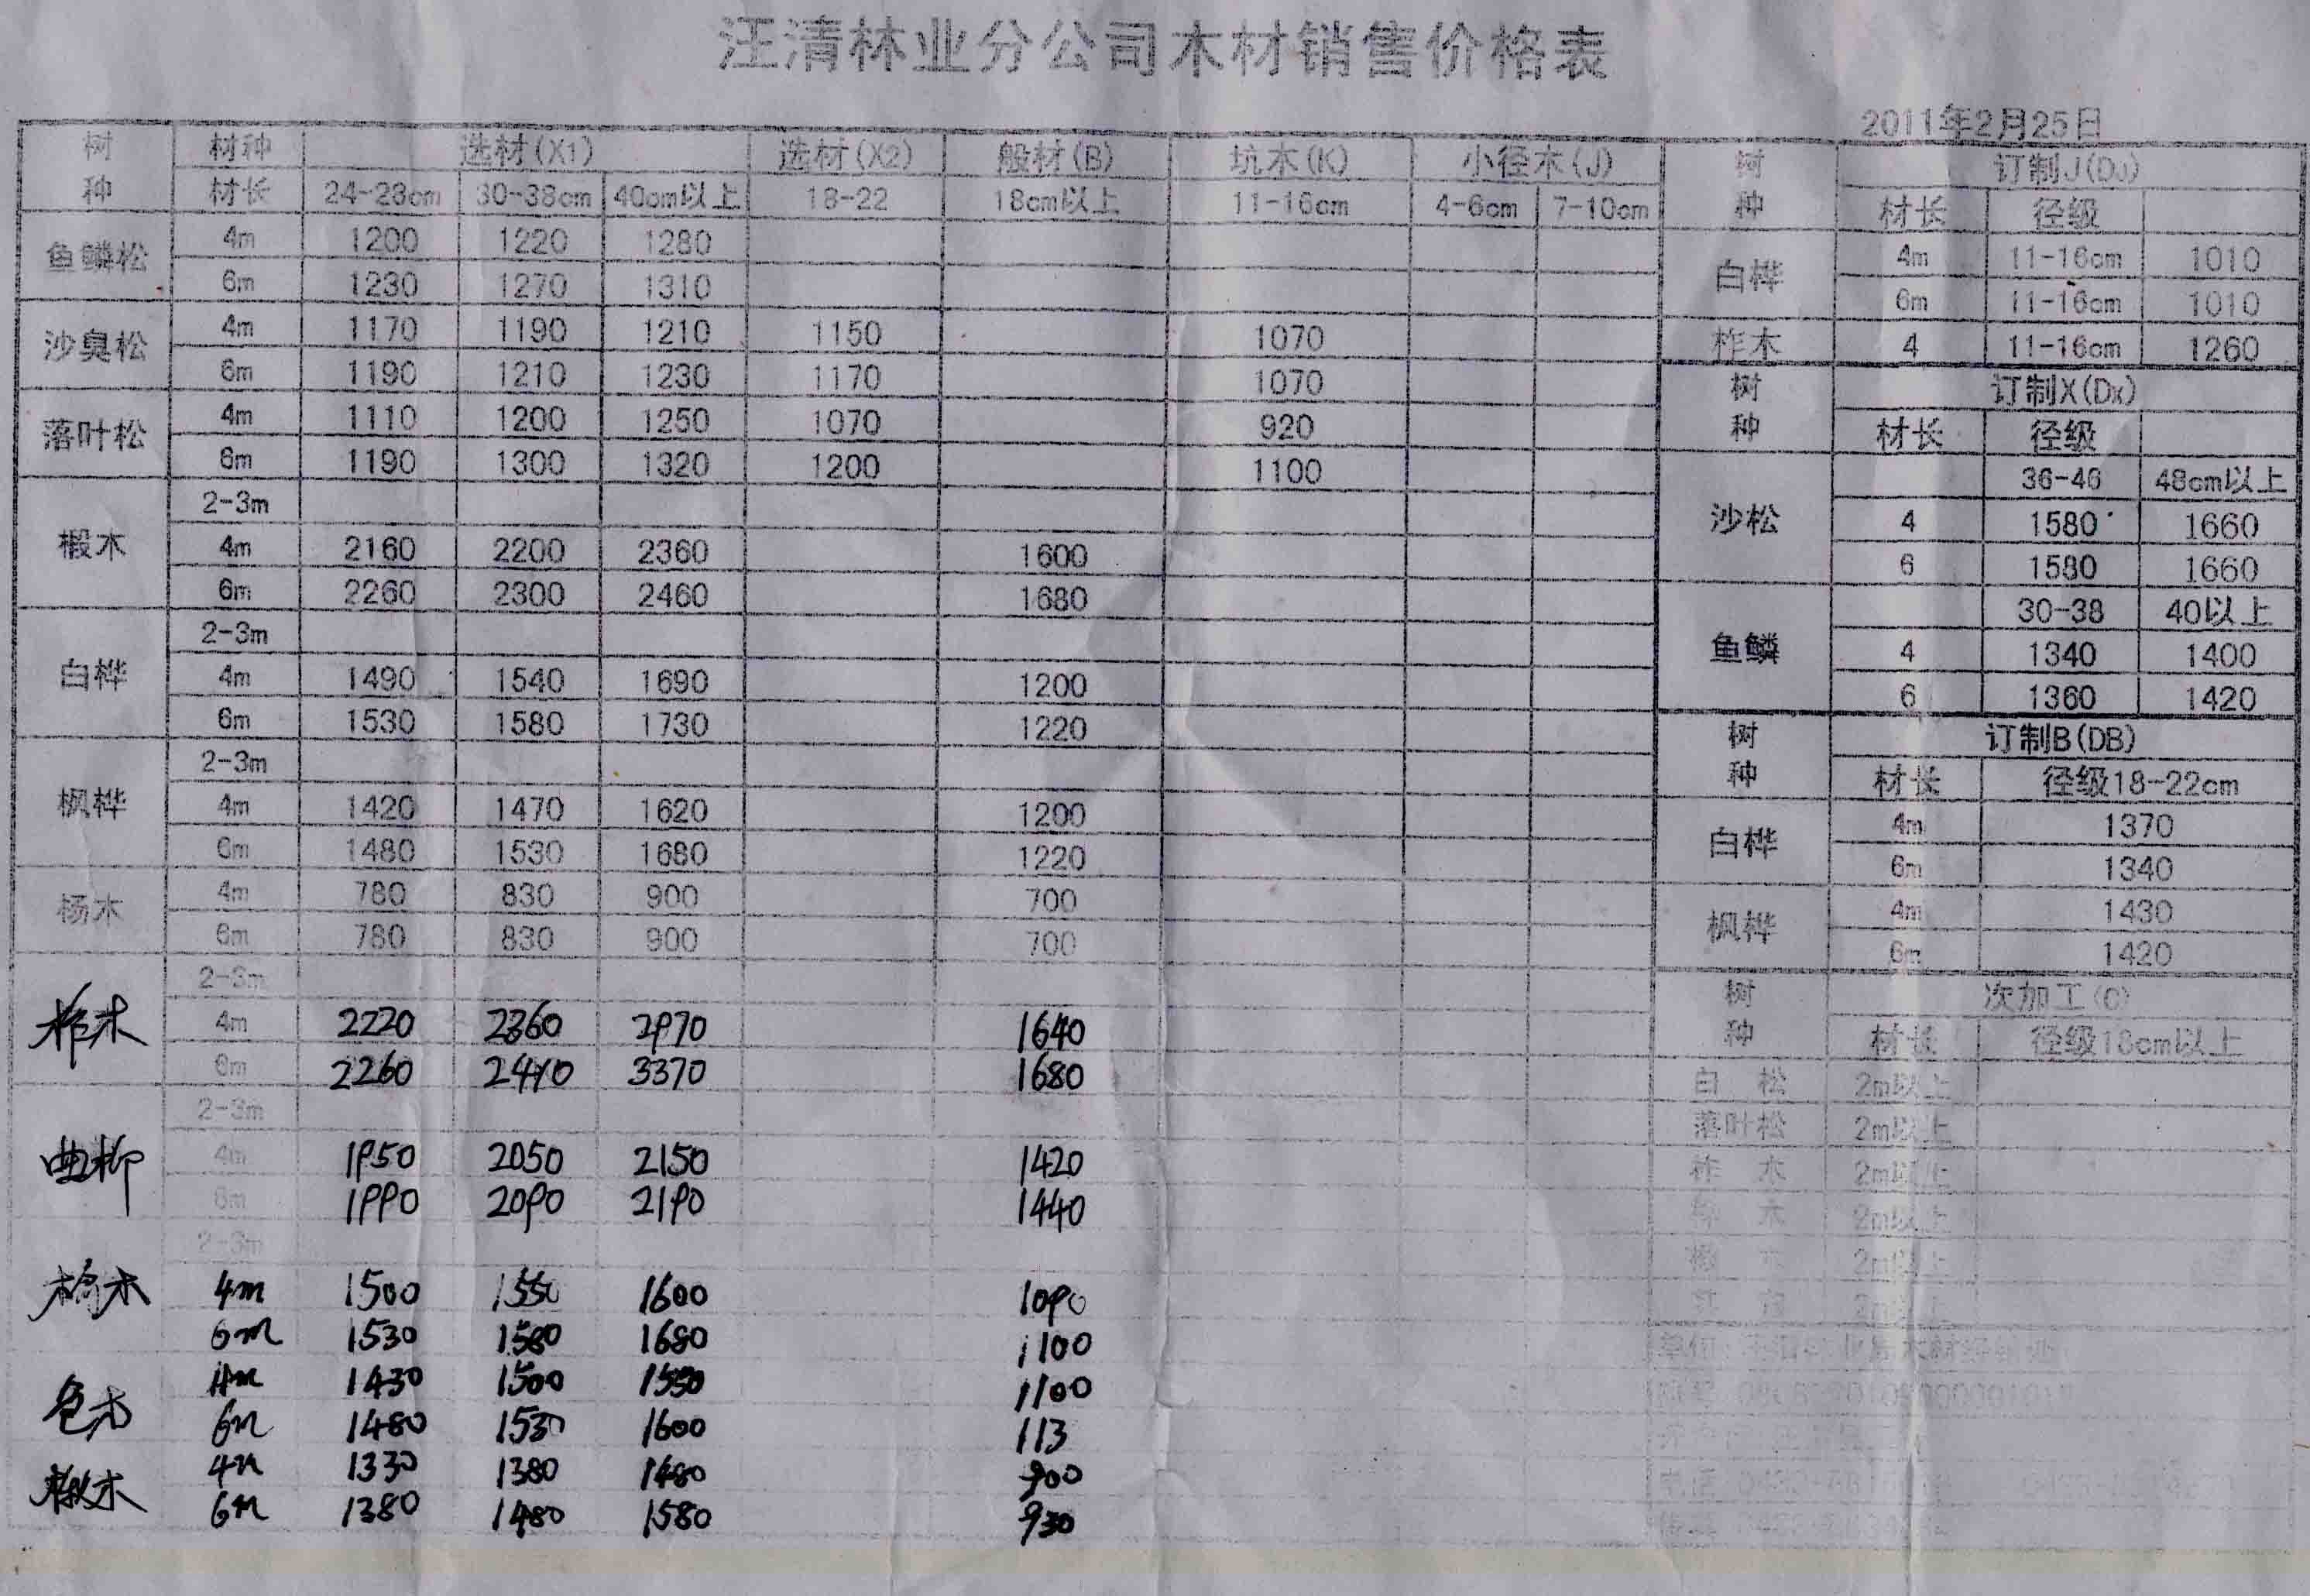 汪清林业分公司木材销售价格表
2011年2月25日
树种 材种 选材(X1) 选材(X2) 般材(B) 坑木(K) 小径木(J)
材长 24-28cm 30-38cm 40cm以上 18-22 18cm以上 11-16cm 4-6cm 7-10cm
鱼鳞松 4m 1200 1220 1280
6m 1230 1270 1310
沙臭松 4m 1170 1190 1210 1150 1070
6m 1190 1210 1230 1170 1070
落叶松 4m 1110 1200 1250 1070 920
6m 1190 1300 1320 1200 1100
椴木 2-3m
4m 2160 2200 2360 1600
6m 2260 2300 2460 1680
白桦 2-3m
4m 1490 1540 1690 1200
6m 1530 1580 1730 1220
枫桦 2-3m
4m 1420 1470 1620 1200
6m 1480 1530 1680 1220
杨木 4m 780 830 900 700
6m 780 830 900 700
柞木 2-3m
4m 2220 2360 2970 1640
6m 2260 2410 3370 1680
曲柳 2-3m
4m 1950 2050 2150 1420
6m 1990 2090 2190 1440
2-3m
4m 1500 1550 1600 1090
6m 1530 1580 1680 1100
色木 4m 1430 1500 1550 1100
6m 1480 1530 1600 113
楸木 4m 1330 1380 1480 900
6m 1380 1480 1580 930
树种 订制J(DJ)
材长 径级
白桦 4m 11-16cm 1010
6m 11-16cm 1010
柞木 4 11-16cm 1260
树种 订制X(Dx)
材长 径级
沙松 36-46 48cm以上
4 1580 1660
6 1580 1660
鱼鳞 30-38 40以上
4 1340 1400
6 1360 1420
树种 订制B(DB)
材长 径级18-22cm
白桦 4m 1370
6m 1340
枫桦 4m 1430
6m 1420
树种 次加工(C)
材长 径级18cm以上
白 松 2m以上
落叶松 2m以上
柞 木 2m以上
木 2m以上
2m以上